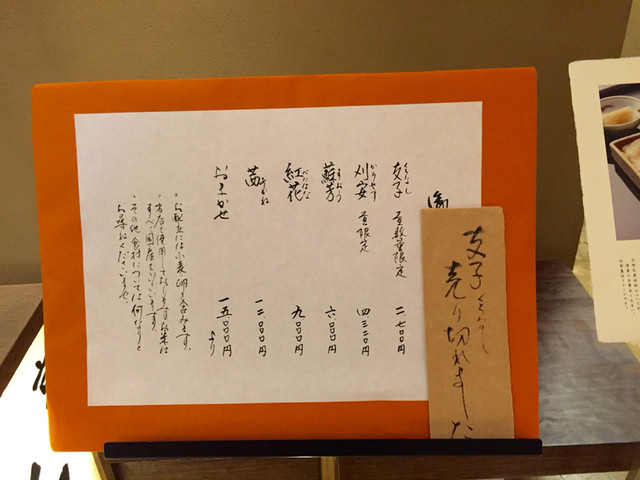 支子 昼数量限定 二、七〇〇円
くちなし
刈安 昼限定 四、三二〇円
かりやす
蘇芳 六、〇〇〇円
すおう
紅花 九、〇〇〇円
べにばな
茜 一二、〇〇〇円
あかね
おまかせ 一五、〇〇〇円より
・お献立には小麦、卵を含みます。
・当店で使用しておりますお米は
すべて国産となっております。
・その他食材については何なりと
お尋ねくださいませ。
支子 くちなし
売り切れました